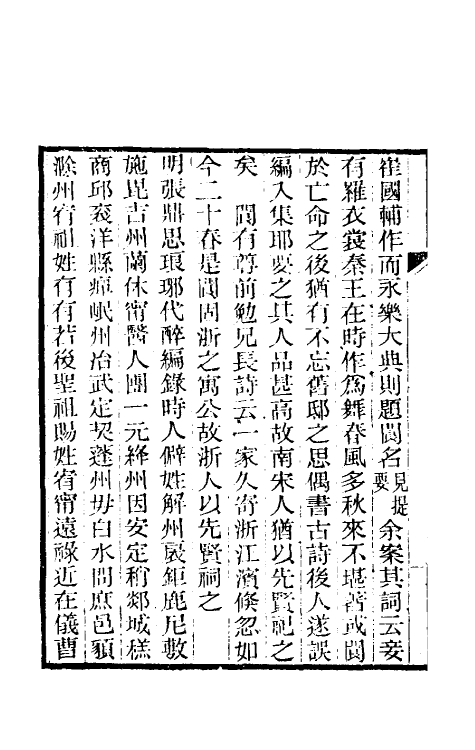 崔國輔作而永樂大典則題閬名見提要余案其詞云妾
有羅衣裳秦王在時作爲舞春風多秋來不堪著或閬
於亡命之後猶有不忘舊邸之思偶書古詩後人遂誤
編入集耶要之其人品甚高故南宋人猶以先賢祀之
矣　閬有尊前勉兄長詩云一家久寄浙江濱倏忽如
今二十春是閬固浙之寓公故浙人以先賢祠之
明張鼎思琅琊代醉編錄時人僻姓解州裴鉅鹿尼敷
施昆吉州蘭休甯醫人團一元絳州因安定稍郯城糕
商邱衮洋縣痺岷州冶武定契蓬州毋白水問庶邑貌
滁州宥祖姓有有若後聖祖賜姓宥甯遠祿近在儀曹